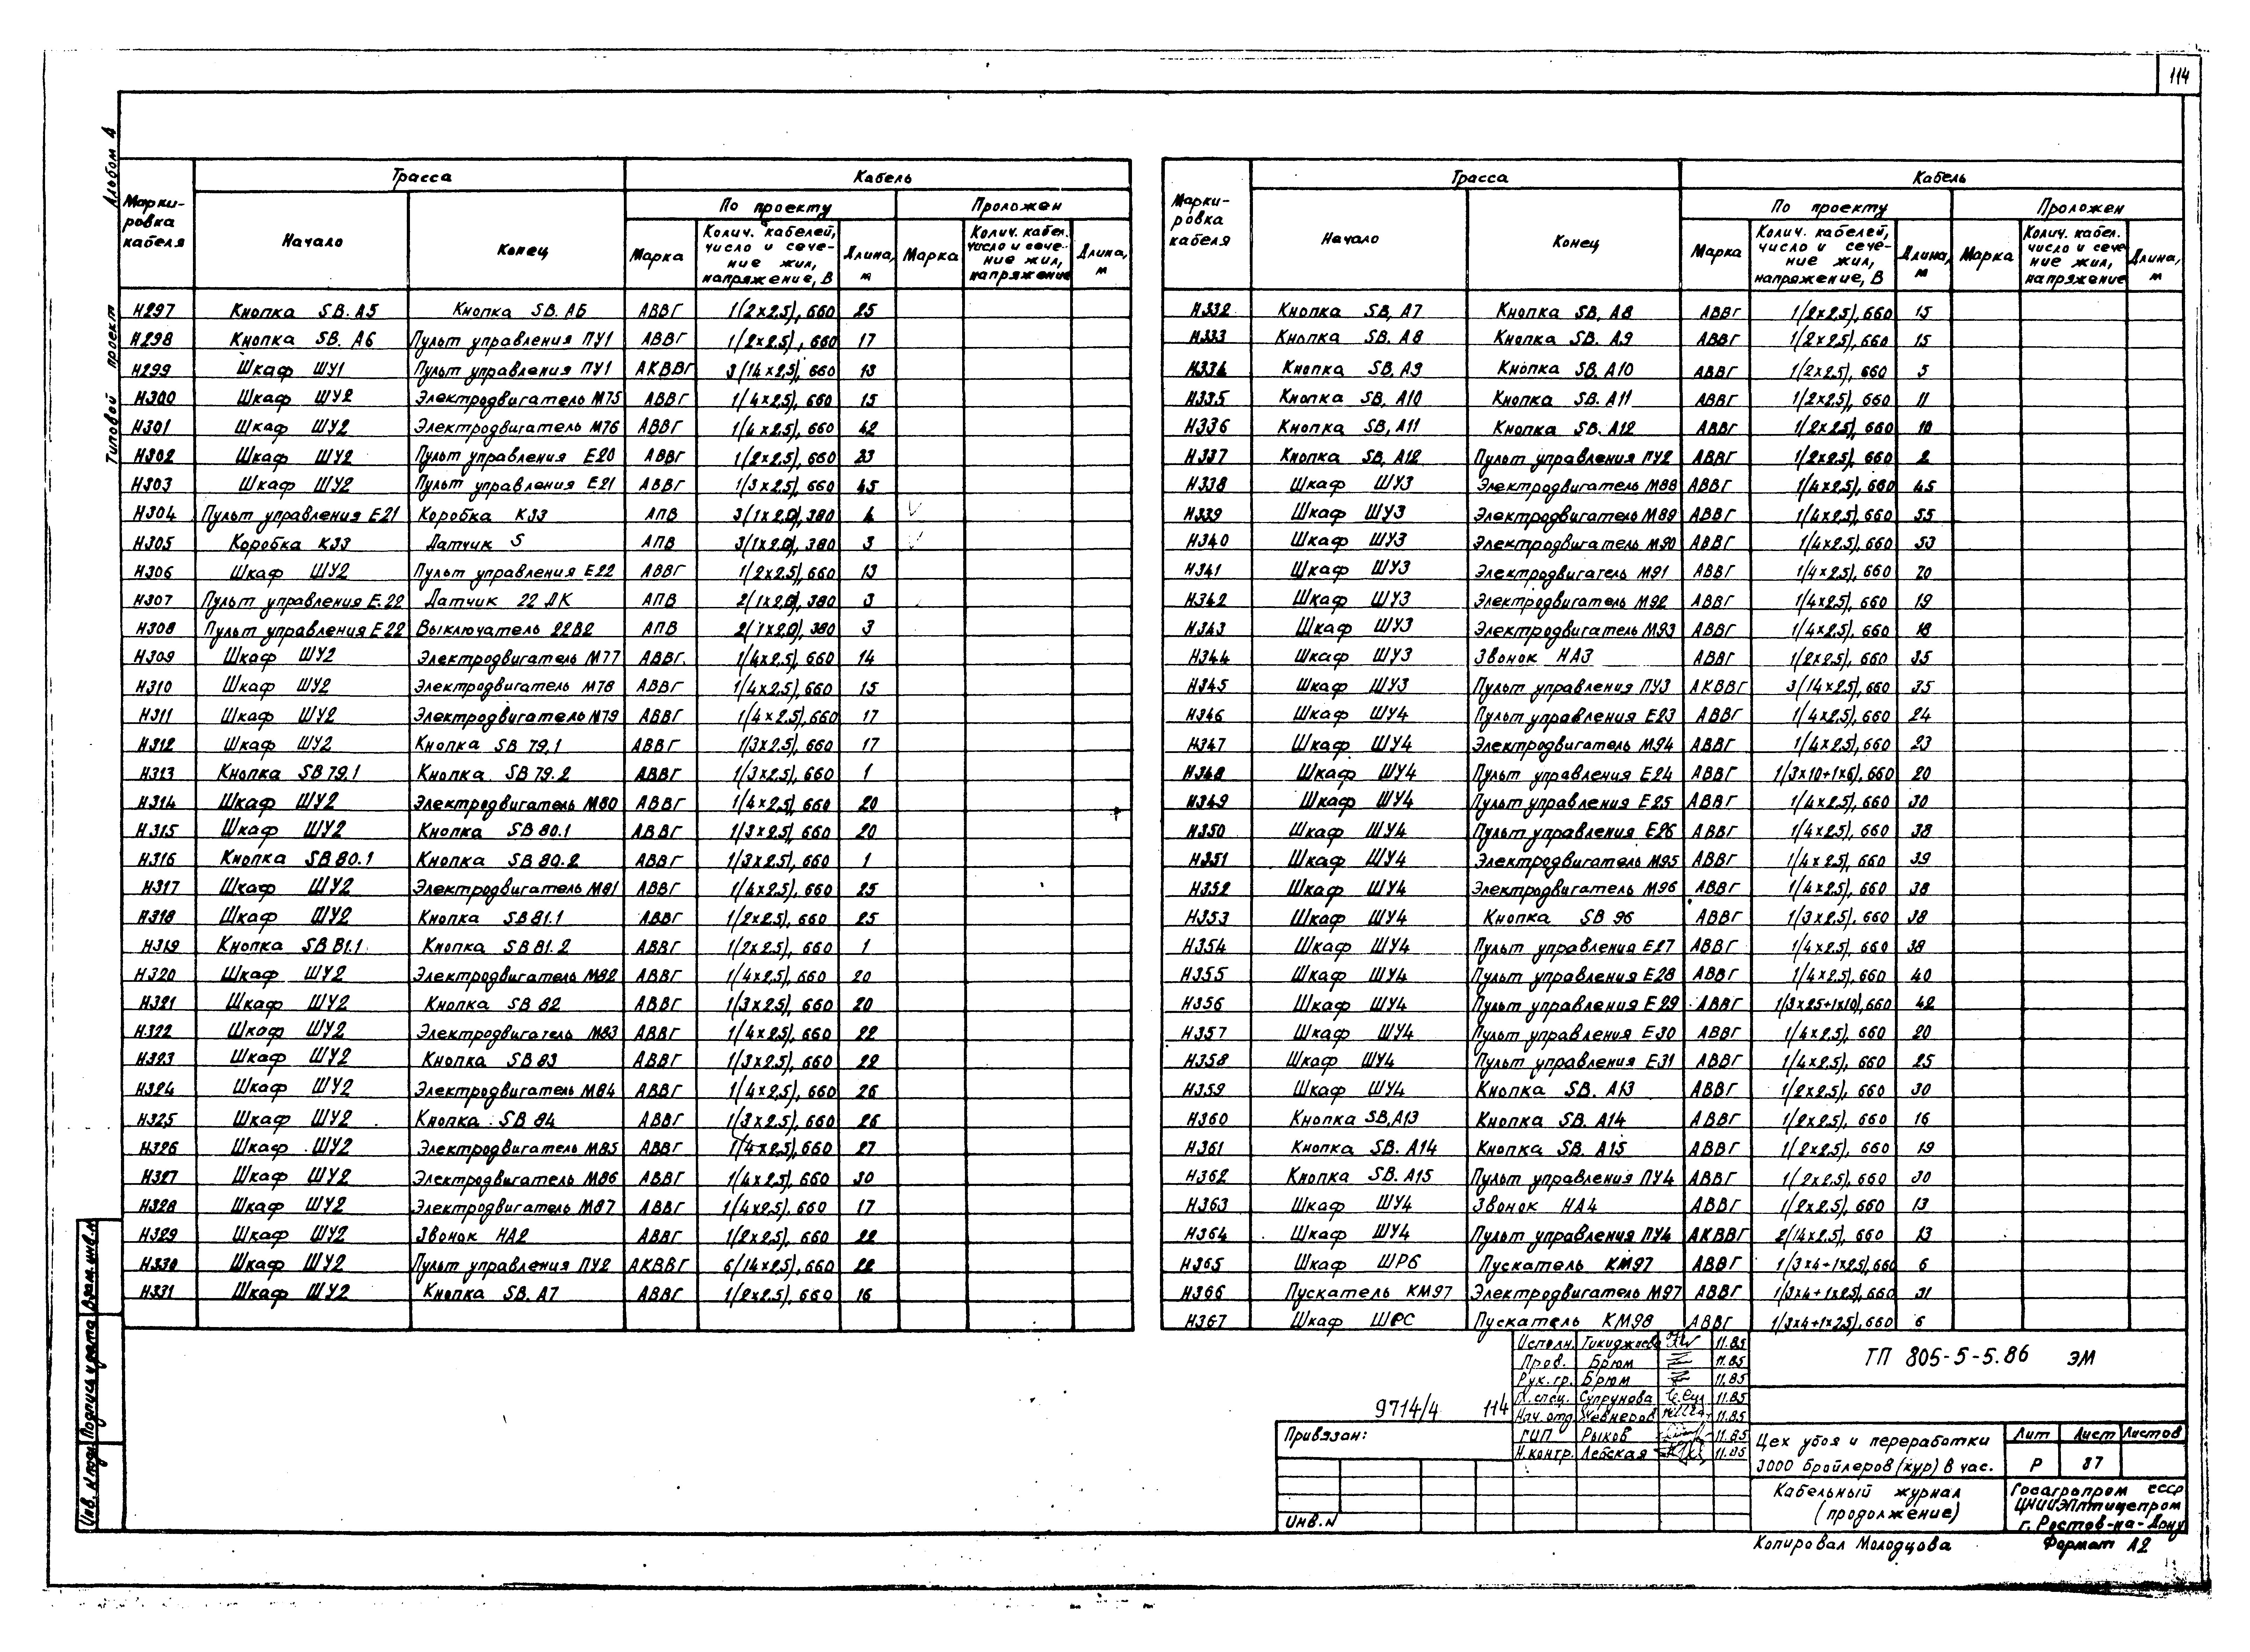 114
Альбом 4
Типовой проект
Марки-
ровка
кабеля
Трасса
Кабель
Начало
Конец
По проекту
Проложен
Марка
Колич. кабелей,
число и сече-
ние жил,
напряжение, В
Длина,
м
Марка
Колич. кабел.
число и сече-
ние жил,
напряжение
Длина,
м
Н297 Кнопка SB. А5 Кнопка SB. А6 АВВГ 1(2×2.5), 660 25
Н298 Кнопка SB. А6 Пульт управления ПУ1 АВВГ 1(2×2.5), 660 17
Н299 Шкаф ШУ1 Пульт управления ПУ1 АКВВГ 3(14×2.5), 660 13
Н300 Шкаф ШУ2 Электродвигатель М75 АВВГ 1(4×2.5), 660 15
Н301 Шкаф ШУ2 Электродвигатель М76 АВВГ 1(4×2.5), 660 42
Н302 Шкаф ШУ2 Пульт управления Е20 АВВГ 1(2×2.5), 660 23
Н303 Шкаф ШУ2 Пульт управления Е21 АВВГ 1(3×2.5), 660 45
Н304 Пульт управления Е21 Коробка К33 АПВ 3(1×2.0), 380 4
Н305 Коробка К33 Датчик S АПВ 3(1×2.0), 380 3
Н306 Шкаф ШУ2 Пульт управления Е22 АВВГ 1(2×2.5), 660 13
Н307 Пульт управления Е.22 Датчик 22 ДК АПВ 2(1×2.0), 380 3
Н308 Пульт управления Е22 Выключатель 22В2 АПВ 2(1×2.0), 380 3
Н309 Шкаф ШУ2 Электродвигатель М77 АВВГ. 1(4×2.5), 660 14
Н310 Шкаф ШУ2 Электродвигатель М78 АВВГ 1(4×2.5), 660 15
Н311 Шкаф ШУ2 Электродвигатель М79 АВВГ 1(4×2.5), 660 17
Н312 Шкаф ШУ2 Кнопка SB 79.1 АВВГ 1(3×2.5), 660 17
Н313 Кнопка SB 79.1 Кнопка SB 79.2 АВВГ 1(3×2.5), 660 1
Н314 Шкаф ШУ2 Электродвигатель М80 АВВГ 1(4×2.5), 660 20
Н315 Шкаф ШУ2 Кнопка SB 80.1 АВВГ 1(3×2.5), 660 20
Н316 Кнопка SB 80.1 Кнопка SB 80.2 АВВГ 1(3×2.5), 660 1
Н317 Шкаф ШУ2 Электродвигатель М81 АВВГ 1(4×2.5), 660 25
Н318 Шкаф ШУ2 Кнопка SB 81.1 АВВГ 1(2×2.5), 660 25
Н319 Кнопка SB 81.1 Кнопка SB 81.2 АВВГ 1(2×2.5), 660 1
Н320 Шкаф ШУ2 Электродвигатель М82 АВВГ 1(4×2.5), 660 20
Н321 Шкаф ШУ2 Кнопка SB 82 АВВГ 1(3×2.5), 660 20
Н322 Шкаф ШУ2 Электродвигатель М83 АВВГ 1(4×2.5), 660 22
Н323 Шкаф ШУ2 Кнопка SB 83 АВВГ 1(3×2.5), 660 22
Н324 Шкаф ШУ2 Электродвигатель М84 АВВГ 1(4×2.5), 660 26
Н325 Шкаф ШУ2 Кнопка SB 84 АВВГ 1(3×2.5), 660 26
Н326 Шкаф ШУ2 Электродвигатель М85 АВВГ 1(4×2.5), 660 27
Н327 Шкаф ШУ2 Электродвигатель М86 АВВГ 1(4×2.5), 660 30
Н328 Шкаф ШУ2 Электродвигатель М87 АВВГ 1(4×2.5), 660 17
Н329 Шкаф ШУ2 Звонок НА2 АВВГ 1(2×2.5), 660 22
Н330 Шкаф ШУ2 Пульт управления ПУ2 АКВВГ 6(14×2.5), 660 22
Н331 Шкаф ШУ2 Кнопка SB. А7 АВВГ 1(2×2.5), 660 16
Марки-
ровка
кабеля
Трасса
Кабель
Начало
Конец
По проекту
Проложен
Марка
Колич. кабелей,
число и сече-
ние жил,
напряжение, В
Длина,
м
Марка
Колич. кабел.
число и сече
ние жил,
напряжение
Длина,
м
Н332 Кнопка SB, А7 Кнопка SB, А8 АВВГ 1(2×2.5), 660 15
Н333 Кнопка SB. А8 Кнопка SB. А9 АВВГ 1(2×2.5), 660 15
Н334 Кнопка SB. А9 Кнопка SB. А10 АВВГ 1(2×2.5), 660 5
Н335 Кнопка SB, А10 Кнопка SB. А11 АВВГ 1(2×2.5), 660 11
Н336 Кнопка SB, А11 Кнопка SB. А12 АВВГ 1(2×2.5), 660 10
Н337 Кнопка SB, А12 Пульт управления ПУ2 АВВГ 1(2×2.5), 660 2
Н338 Шкаф ШУ3 Электродвигатель М88 АВВГ 1(4×2.5), 660 45
Н339 Шкаф ШУ3 Электродвигатель М89 АВВГ 1(4×2.5), 660 55
Н340 Шкаф ШУ3 Электродвигатель М90 АВВГ 1(4×2.5), 660 53
Н341 Шкаф ШУ3 Электродвигатель М91 АВВГ 1(4×2.5), 660 20
Н342 Шкаф ШУ3 Электродвигатель М92 АВВГ 1(4×2.5), 660 19
Н343 Шкаф ШУ3 Электродвигатель М93 АВВГ 1(4×2.5), 660 18
Н344 Шкаф ШУ3 Звонок НА3 АВВГ 1(2×2.5), 660 35
Н345 Шкаф ШУ3 Пульт управления ПУ3 АКВВГ 3(14×2.5), 660 35
Н346 Шкаф ШУ4 Пульт управления Е23 АВВГ 1(4×2.5), 660 24
Н347 Шкаф ШУ4 Электродвигатель М94 АВВГ 1(4×2.5), 660 23
Н348 Шкаф ШУ4 Пульт управления Е24 АВВГ 1(3×10+1×6), 660 20
Н349 Шкаф ШУ4 Пульт управления Е25 АВВГ 1(4×2.5), 660 30
Н350 Шкаф ШУ4 Пульт управления Е26 АВВГ 1(4×2.5), 660 38
Н351 Шкаф ШУ4 Электродвигатель М95 АВВГ 1(4×2.5), 660 39
Н352 Шкаф ШУ4 Электродвигатель М96 АВВГ 1(4×2.5), 660 38
Н353 Шкаф ШУ4 Кнопка SB 96 АВВГ 1(3×2.5). 660 38
Н354 Шкаф ШУ4 Пульт управления Е27 АВВГ 1(4×2.5), 660 38
Н355 Шкаф ШУ4 Пульт управления Е28 АВВГ 1(4×2.5), 660 40
Н356 Шкаф ШУ4 Пульт управления Е29 АВВГ 1(3×25+1×10), 660 42
Н357 Шкаф ШУ4 Пульт управления Е30 АВВГ 1(4×2.5), 660 20
Н358 Шкаф ШУ4 Пульт управления Е31 АВВГ 1(4×2.5), 660 25
Н359 Шкаф ШУ4 Кнопка SB. А13 АВВГ 1(2×2.5), 660 30
Н360 Кнопка SB, А13 Кнопка SB. А14 АВВГ 1(2×2.5), 660 16
Н361 Кнопка SB. А14 Кнопка SB. А15 АВВГ 1(2×2.5), 660 19
Н362 Кнопка SB. А15 Пульт управления ПУ4 АВВГ 1(2×2.5), 660 30
Н363 Шкаф ШУ4 Звонок НА4 АВВГ 1(2×2.5), 660 13
Н364 Шкаф ШУ4 Пульт управления ПУ4 АКВВГ 2(14×2.5), 660 13
Н365 Шкаф ШР6 Пускатель КМ97 АВВГ 1(3×4+1×2.5), 660 6
Н366 Пускатель КМ97 Электродвигатель М97 АВВГ 1(3×4+1×2.5), 660 31
Н367 Шкаф ШРС Пускатель КМ98 АВВГ 1(3×4+1×2.5), 660 6
Исполн. Тикиджиева 11.85
Пров. Брюм 11.85
Рук. гр. Брюм 11.85
Гл. спец. Супрунова 11.85
Нач. отд. Жевнеров 11.85
ГИП Рыков 11.85
Н. контр. Лебская 11.85
ТП 805-5-5.86 ЭМ
9714/4 114
Привязан:
Инв. N
Цех убоя и переработки
3000 бройлеров (кур) в час.
Лит Лист Листов
Р 87
Кабельный журнал
(продолжение)
Госагропром СССР
ЦНИИЭПптицепром
г. Ростов-на-Дону
Копировал Молодцова
Формат А2
Взам. инв. N
Подпись и дата
Инв. N подл.